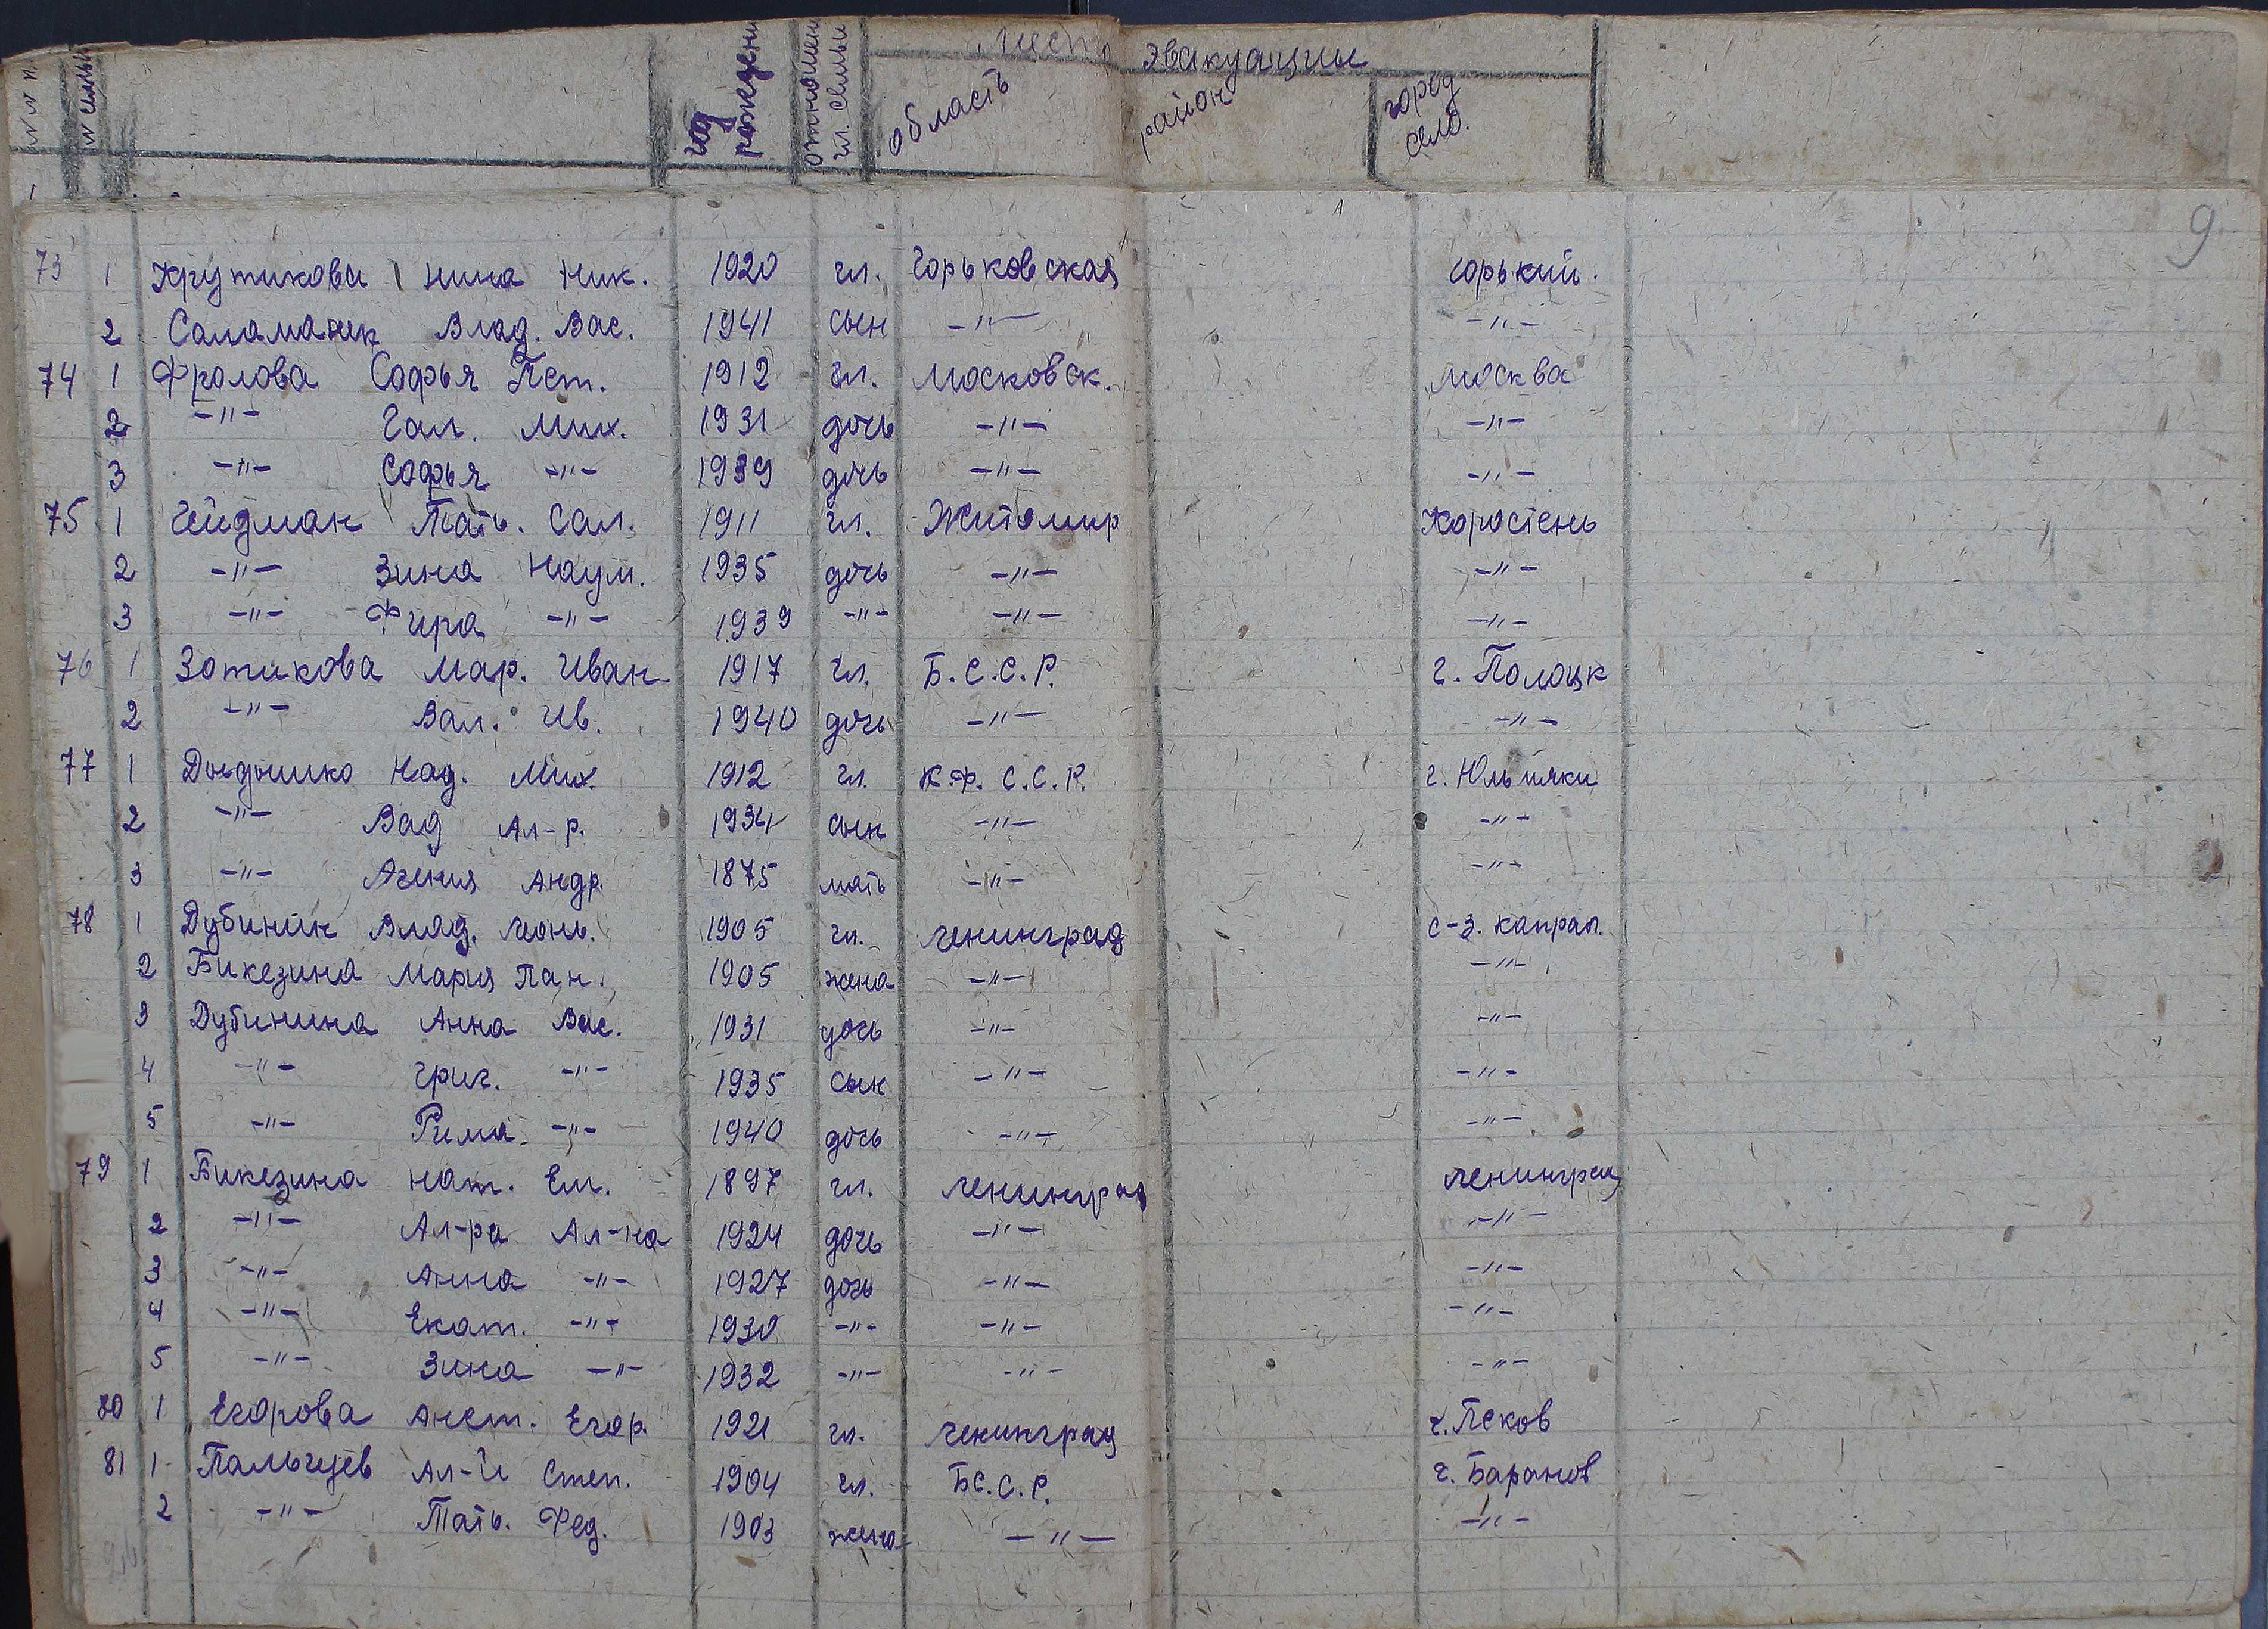 №№ п. № семьи год рождени отношен. гл. семьи место эвакуации
область район город село.
9
73 1 Крутикова Нина Ник. 1920 гл. Горьковская Горький.
2 Саламатик Влад. Вас. 1941 сын -"- -"-
74 1 Фролова Софья Пет. 1912 гл. Московск. Москва
2 -"- Гал. Мих. 1931 дочь -"- -"-
3 -"- Софья -"- 1939 дочь -"- -"-
75 1 Гейдман Тать. Сол. 1911 гл. Житомир Коростень
2 -"- Зина Наум. 1935 дочь -"- -"-
3 -"- Фира -"- 1939 -"- -"- -"-
76 1 Зотикова Мар. Иван 1917 гл. Б.С.С.Р. г. Полоцк
2 -"- Вал. Ив. 1940 дочь -"- -"-
77 1 Над. Мих. 1912 гл. К.Ф. С.С.Р. г.
2 -"- Вад Ал-р. 1934 сын -"- -"-
3 -"- Андр. 1875 мать -"- -"-
78 1 Дубинин Влад. 1905 гл. Ленинград с-з.
2 Бикезина Мария Пан. 1905 жена -"- -"-
3 Дубинина Анна Вас. 1931 дочь -"- -"-
4 -"- Григ. -"- 1935 сын -"- -"-
5 -"- Рима -"- 1940 дочь -"- -"-
79 1 Бикезина Нат. Ем. 1897 гл. Ленинград Ленинград
2 -"- Ал-ра Ал-на 1924 дочь -"- -"-
3 -"- Анна -"- 1927 дочь -"- -"-
4 -"- Екат. -"- 1930 -"- -"- -"-
5 -"- Зина -"- 1932 -"- -"- -"-
80 1 Егорова Анст. Егор. 1921 гл. Ленинград г. Псков
81 1 Пальчцев Ал-й Степ. 1904 гл. БС.С.Р. г. Баранов
2 -"- Тать. Фед. 1903 жена -"- -"-